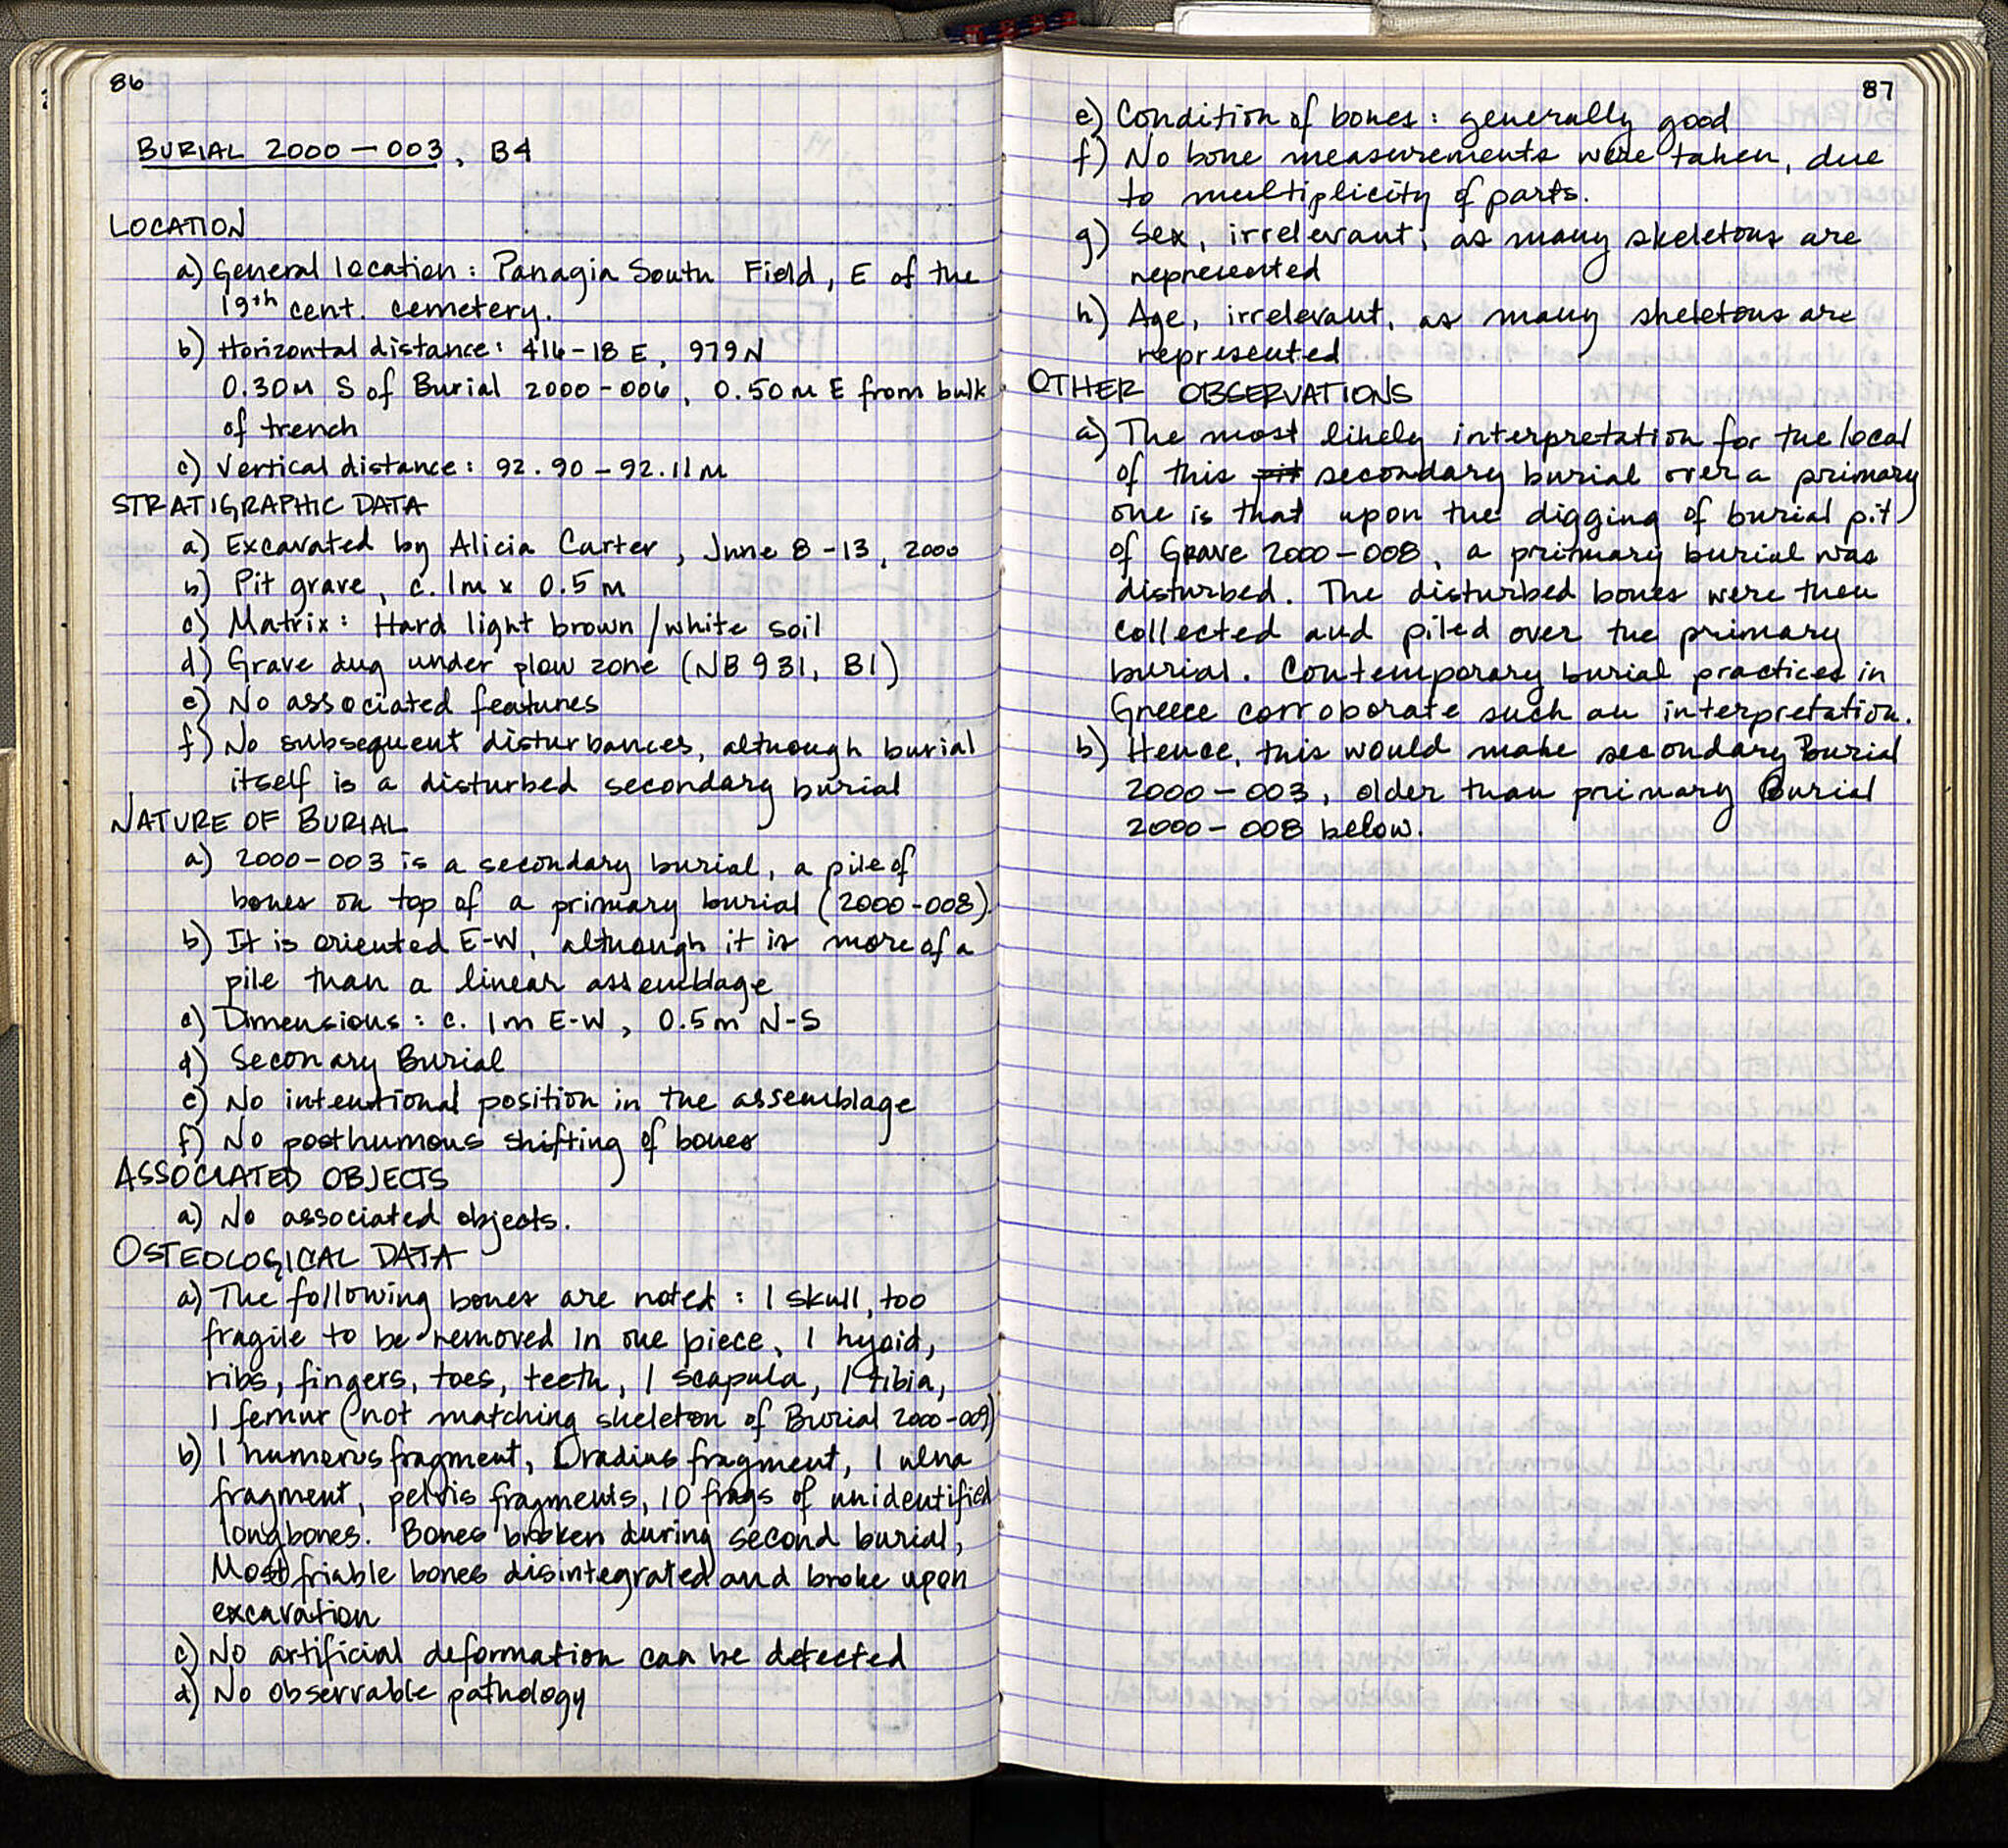 86
BURIAL 2000-003, B4
LOCATION
a) General location: Panagia South Field, E of the
19th cent. cemetery.
b) Horizontal distance: 416-18 E, 979 N
0.30m S of Burial 2000-006, 0.50m E from bulk
of trench
c) Vertical distance: 92.90-92.11m
STRATIGRAPHIC DATA
a) Excavated by Alicia Carter, June 8-13, 2000
b) Pit grave, c. 1m x 0.5m
c) Matrix: Hard light brown/white soil
d) Grave dug under plow zone (NB 931, B1)
e) No associated features
f) No subsequent disturbances, although burial
itself is a disturbed secondary burial
NATURE OF BURIAL
a) 2000-003 is a secondary burial, a pile of
bones on top of a primary burial (2000-008).
b) It is oriented E-W, although it is more of a
pile than a linear assemblage
c) Dimensions: c. 1m E-W, 0.5m N-S
d) Seconary Burial
e) No intentional position in the assemblage
f) No posthumous shifting of bones
ASSOCIATED OBJECTS
a) No associated objects.
OSTEOLOGICAL DATA
a) The following bones are noted: 1 skull, too
fragile to be removed in one piece, 1 hyoid,
ribs, fingers, toes, teeth, 1 scapula, 1 tibia,
1 femur (not matching skeleton of Burial 2000-009)
b) 1 humerus fragment, 1 radius fragment, 1 ulna
fragment, pelvis fragments, 10 frags of unidentified
longbones. Bones broken during second burial,
Most friable bones disintegrated and broke upon
excavation
c) No artificial deformation can be detected
d) No observable pathology
87
e) Condition of bones: generally good
f) No bone measurements were taken, due
to multiplicity of parts.
g) Sex, irrelevant, as many skeletons are
represented
h) Age, irrelevant, as many skeletons are
represented
OTHER OBSERVATIONS
a) The most likely interpretation for the local
of this pit secondary burial over a primary
one is that upon the digging of burial pit
of Grave 2000-008, a primary burial was
disturbed. The disturbed bones were then
collected and piled over the primary
burial. Contemporary burial practices in
Greece corroborate such an interpretation.
b) Hence, this would make secondary Burial
2000-003, older than primary Burial
2000-008 below.